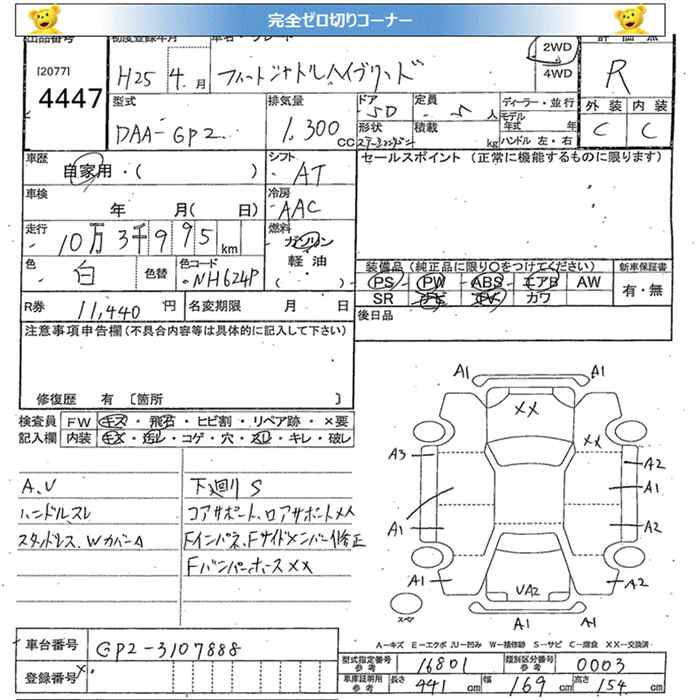 完全ゼロ切りコーナー
出品番号 初度登録年月 車名・グレード 2WD 評価点
[2077] 4447 H25年 4月 フィットシャトルハイブリッド 4WD R
型式 排気量 ドア 定員 ディーラー・並行 外装 内装
DAA-GP2 1,300 CC 5D 5人 モデル年式 年 C C
形状 積載 kg ハンドル 左・右
車歴 自家用・( ) シフト AT セールスポイント (正常に機能するものに限ります)
車検 年 月( 日) 冷房 AAC
走行 10万3千995km 燃料 ガソリン 軽油 ( )
色 白 色替 色コード NH624P
装備品(純正品に限り○をつけてください) 新車保証書
PS PW ABS エアB AW 有・無
SR ナビ TV カワ
R券 11,440円 名変期限 月 日 後日品
注意事項申告欄(不具合内容等は具体的に記入して下さい)
修復歴 有 〔箇所 〕
検査員 FW キズ・飛石・ヒビ割・リペア跡・×要
記入欄 内装 キズ・汚レ・コゲ・穴・スレ・キレ・破レ
A.V 下廻りS
ハンドルスレ コアサポート、ロアサポートメメ
スタッドレス、WカバーA Fインパネ、Fサイドメンバー修正
FバンパーホースXX
A1 A1
XX
XX
A3 A2
A1
A1 A2
A1 UA2 A2
スペア A1 A1
A-キズ E-エクボ U-凹み W-補修跡 S-サビ C-腐食 XX-交換済
車台番号 GP2-3107888
登録番号
型式指定番号参考 16801 類別区分番号参考 0003
車庫証明用参考 長さ 441cm 幅 169cm 高さ 154cm